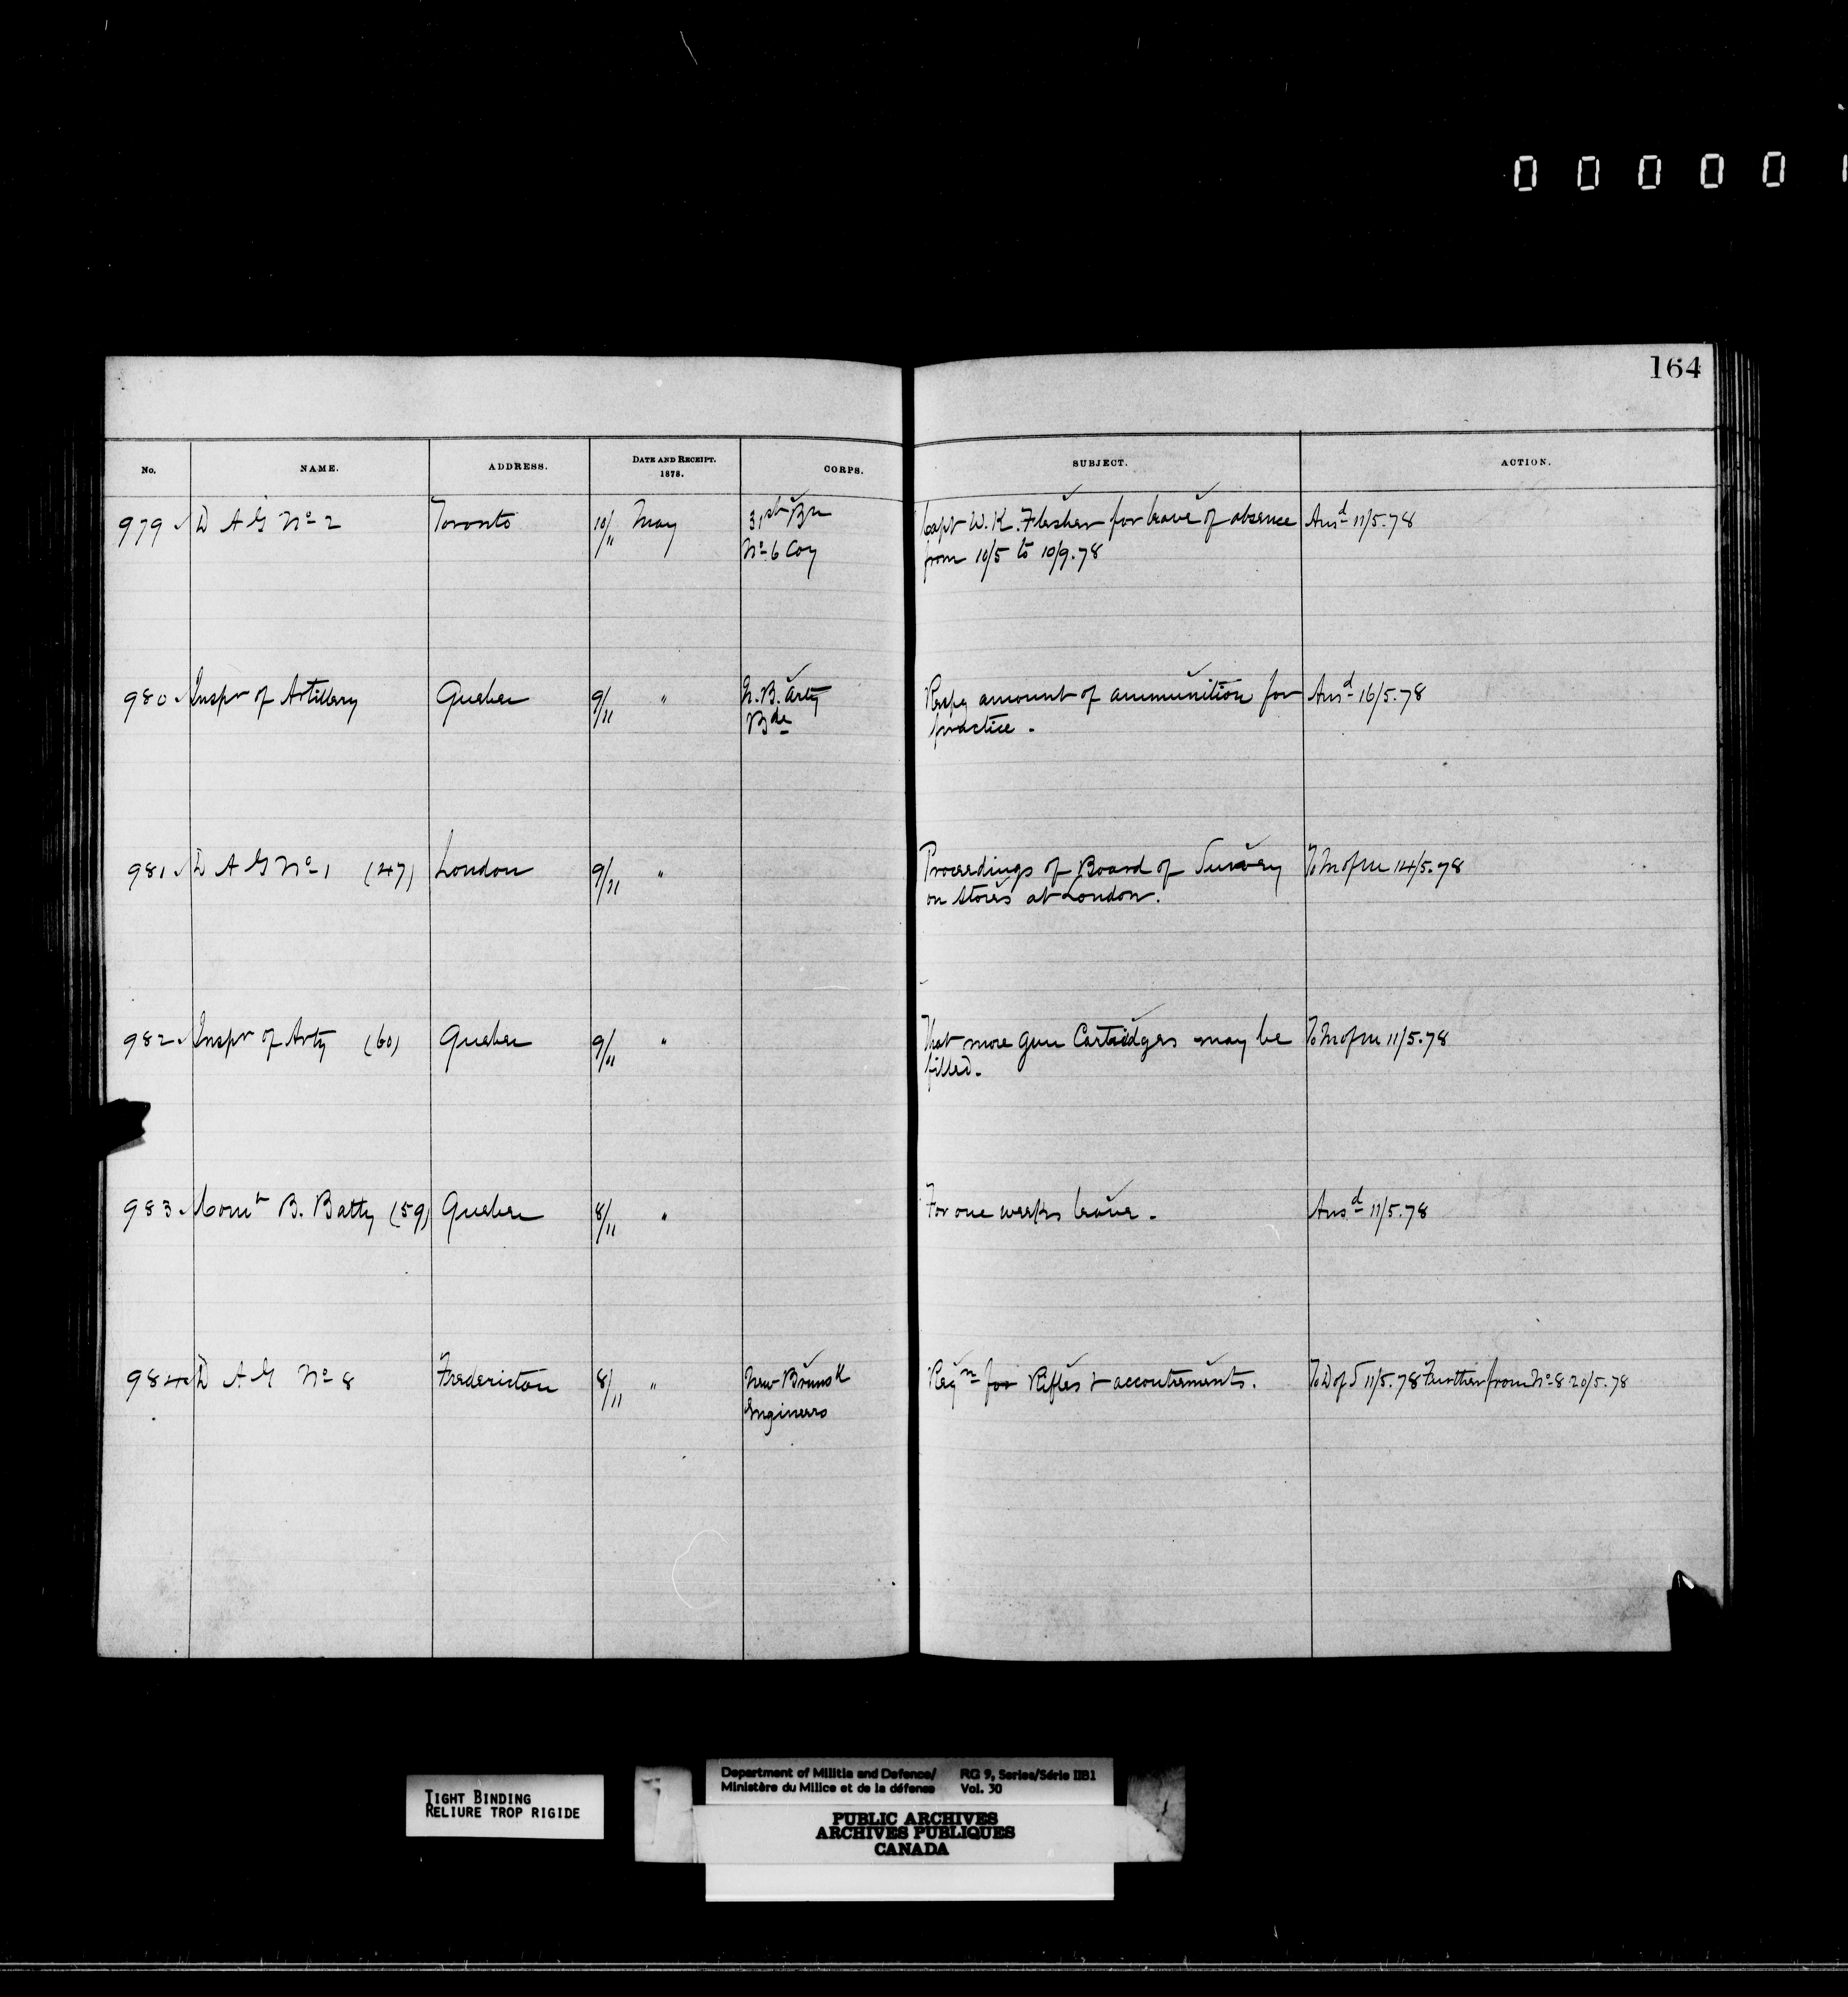 000001
164
No. NAME. ADDRESS. DATE AND RECEIPT. 1878. CORPS. SUBJECT. ACTION.
979 D A G No 2 Toronto 10/11 May 31st Bn Capt W. K. Flesher for leave of absence Ansd 11/5.78
No 6 Coy from 10/5 to 10/9.78
980 Inspr of Artillery Quebec 9/11 " N. B. Arty Respg amount of ammunition for Ansd 16/5.78
Bde practice.
981 D A G No 1 (47) London 9/11 " Proceedings of Board of Survey To M of M 14/5.78
on Stores at London.
982 Inspr of Arty (60) Quebec 9/11 " That more gun Cartridges may be To M of M 11/5.78
filled.
983 Comt B. Batty (59) Quebec 8/11 " For one weeks leave. Ansd 11/5.78
984 D A G No 8 Fredericton 8/11 " New Brunsk Reqn for Rifles & accoutrements. To D of S 11/5.78 Further from No 8 20/5.78
Engineers
TIGHT BINDING
RELIURE TROP RIGIDE
Department of Militia and Defence/ RG 9, Series/Série IIB1
Ministère du Milice et de la défense Vol. 30
PUBLIC ARCHIVES
ARCHIVES PUBLIQUES
CANADA